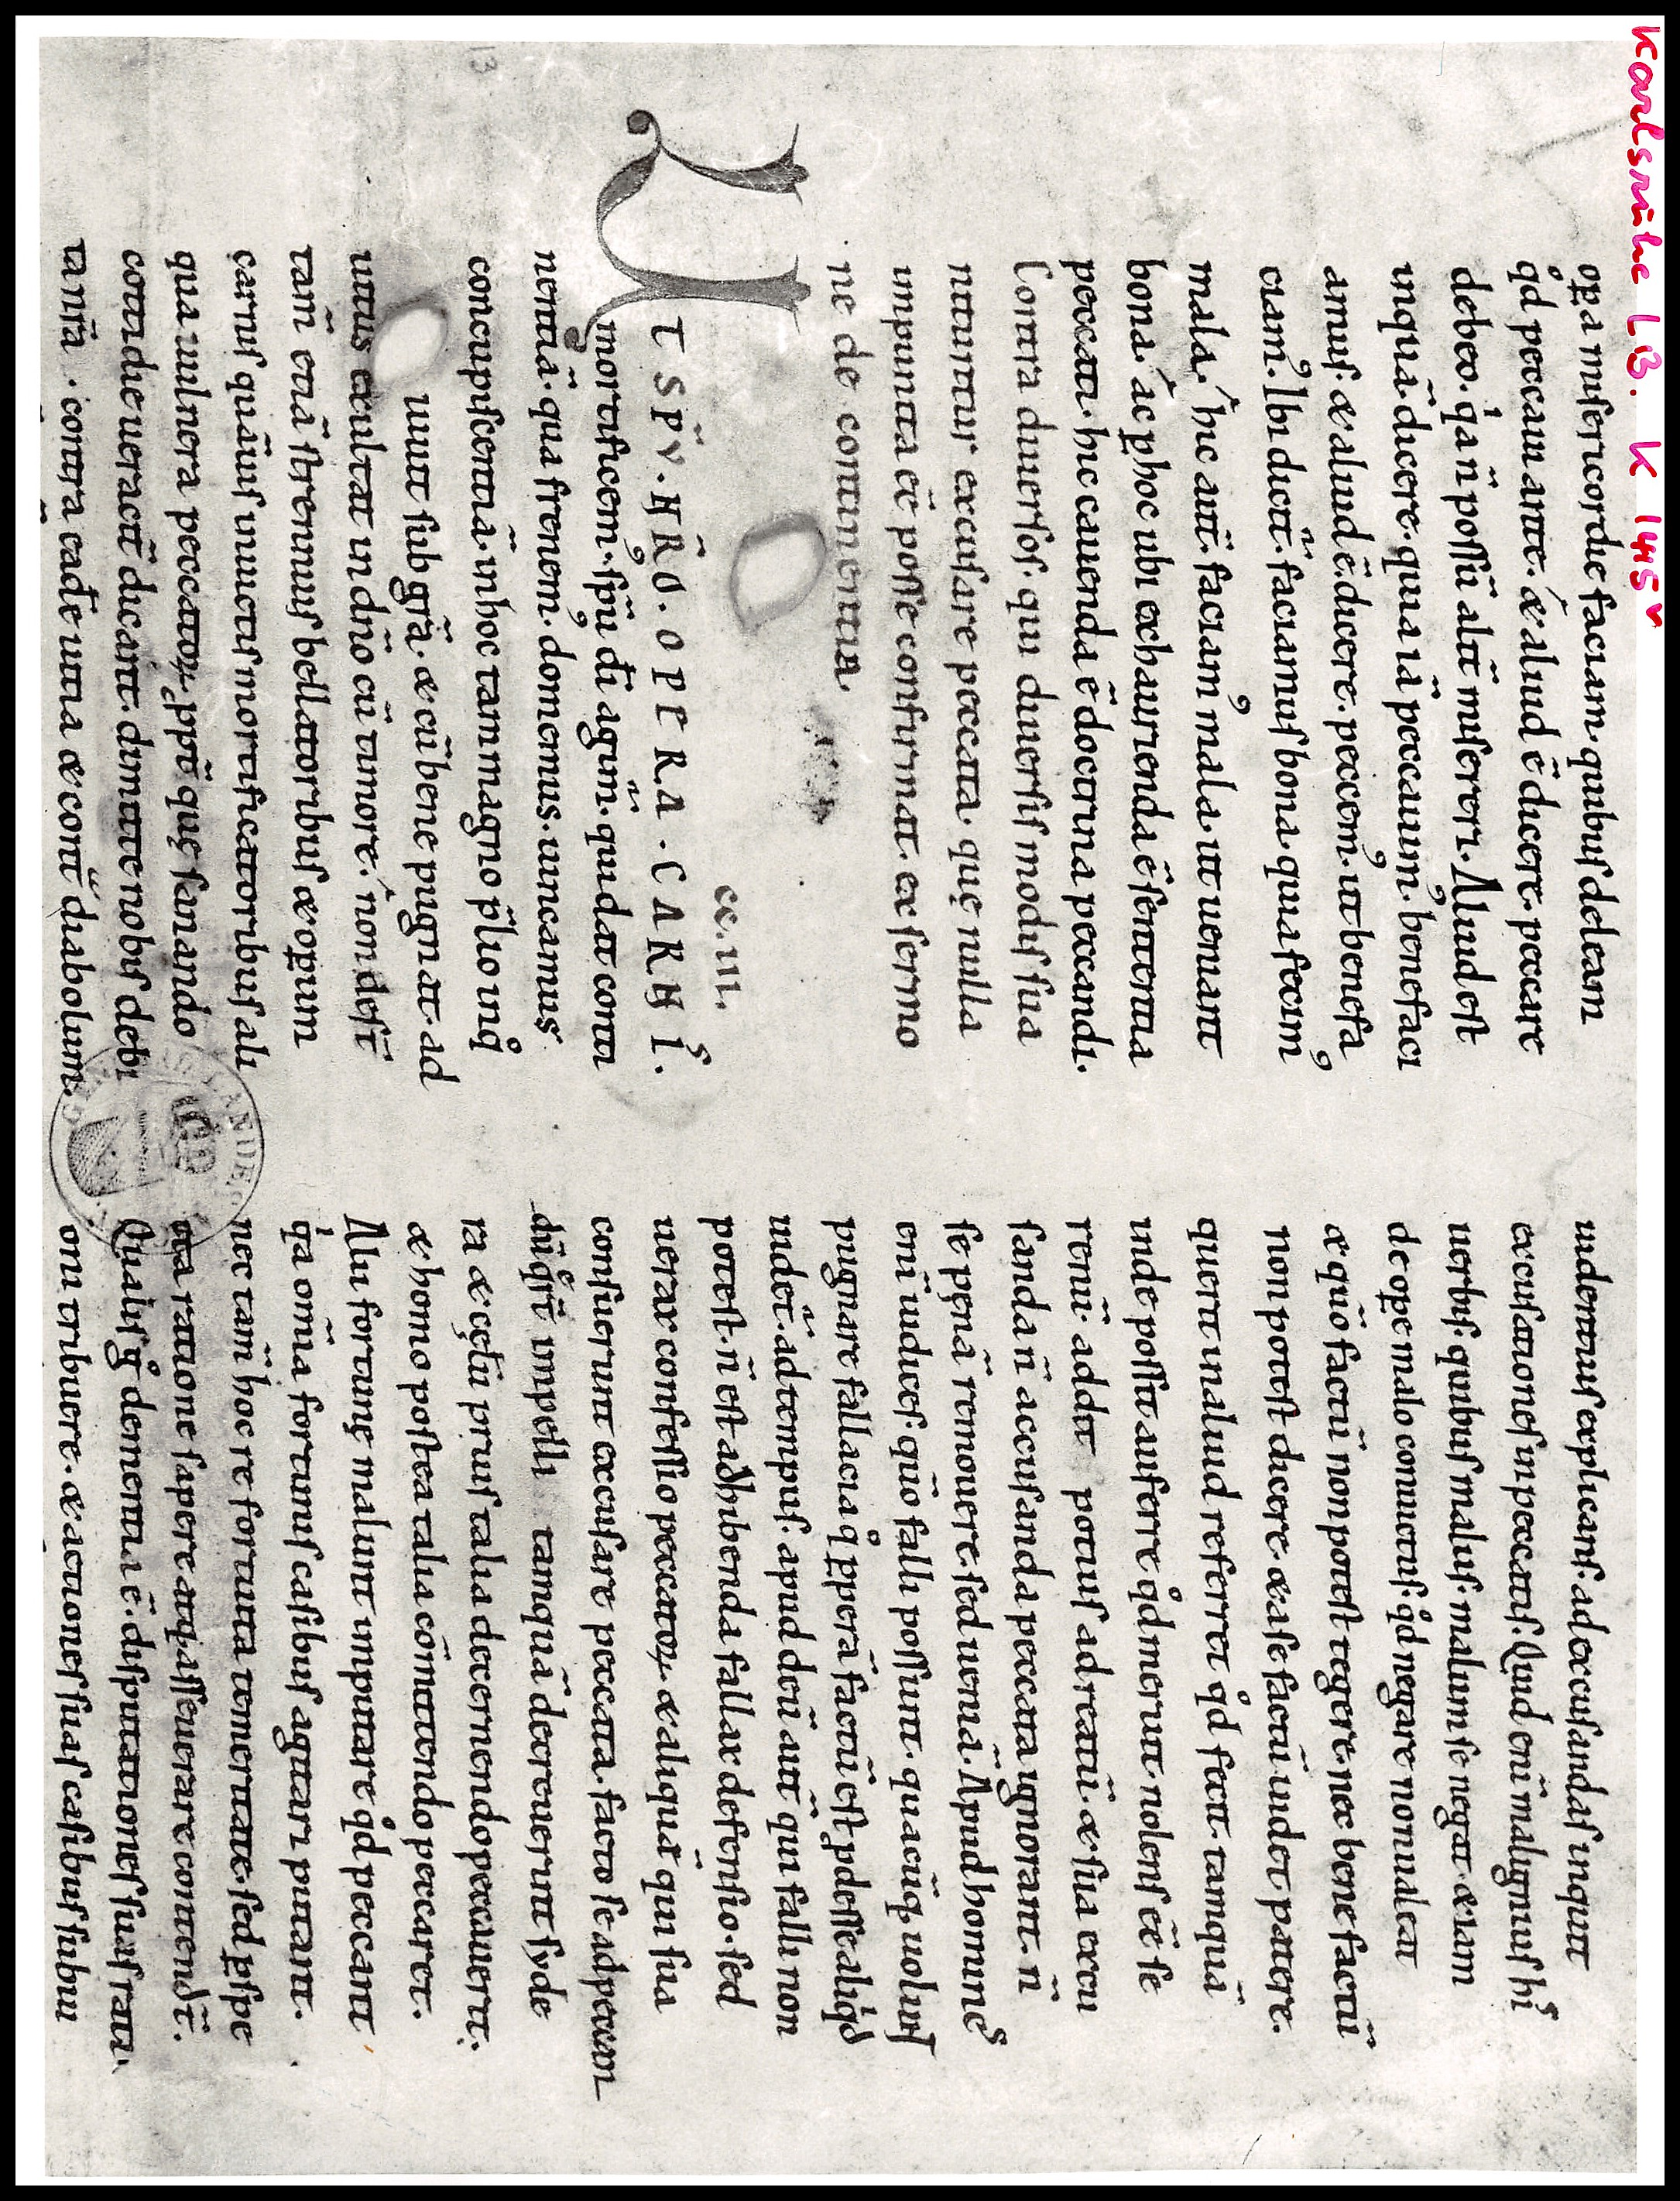 Karlsruhe LB. K 1415v
op̱a misericordie faciam. quibus deleam
qd̊ peccaui ante. & aliud ē dicere. peccare
debeo. qͥa n̄ possū alit̄ misereri. Aliud est
inquā dicere. quia iā peccauim᾿. benefaci
amus. & aliud ē dicere. peccem᾿. ut benefa
ciam᾿. Ibi dicit̄. faciamus bona. qua fecim᾿
mala. hic aut̄. faciam᾿ mala. ut ueniant
bona. ac p̱hoc ubi exhaurienda ē sententia
peccati. hic cauenda ē doctrina peccandi.
Contra diuersos. qui diuersis modis sua
nituntur excusare peccata. quę nulla
impunita eē posse confirmat. ex sermo
ne de continentia.
cc.iii.
UT SPV̄. NR̄O. OPERA. CARNIˢ.
mortificem᾿. sp̄u dī agim̄. qui dat conti
nentiā. qua frenem᾿. domemus. uincamus
concupiscentiā. inhoc tam magno p̄lio inq̊
uiuit sub gr̄a. & cū bene pugnat. ad
iutus exultat in dn̄o cū timore. non dest̄
tam̄ etiā strennuis bellatoribus & op̱um
carnis quāuis inuictis mortificatoribus ali
qua uulnera peccatoꝝ. ꝓpt̄ quę sanando
cottidie ueracit̄ dicant. dimitte nobis debi
ta nr̄a. contra cad̄e uitia & cont̄ diabolum.
uidentius explicans. ad excusandas inquit
excusationes in peccatis. Quid eni malignius hiˢ
uerbis. quibus malus. malum se negat. etiam
de op̱e malo conuictus. qd̊ negare non ualeat
& qūo factū non potest tegere. nec bene factū
non potest dicere. & a se factū uidet patere.
querit in aliud referret qd̊ fecit. tamquā
inde possit auferre qd̊ meruit. nolens eē se
reum̄. addit potius ad reatū. & sua excu
sanda n̄ accusanda peccata ignorant. n̄
se penā remouere. sed ueniā. Apud homineˢ
eni iudices. qūo falli possunt. quacūq. uolunt
pugnare fallacia q̊ ꝓperā factū est. ꝓdesse aliqͥd
uidet̄. ad tempus. apud deū aut̄ qui falli non
potest. n̄ est adhibenda fallax defensio. sed
uerax confessio peccatoꝝ. & aliqui s̄ qui sua
consuerunt excusare peccata. facto se ad peccan
impelli tamquā decreuerunt syde
ra & cęlū prius talia decernendo peccauerit.
& homo postea talia cōmittendo peccaret.
Alii fortunę malunt imputare qd̊ peccant
qͥa om̄a fortuitis casibus agitari putant.
nec tam̄ hoc re fortuita temeritate. sed p̱spe
cta ratione sapere atq. asseuerare contendt̄.
Qualis g̊ dementia ē. disputationes suas rati
oni tribuere. & actiones suas casibus subiu